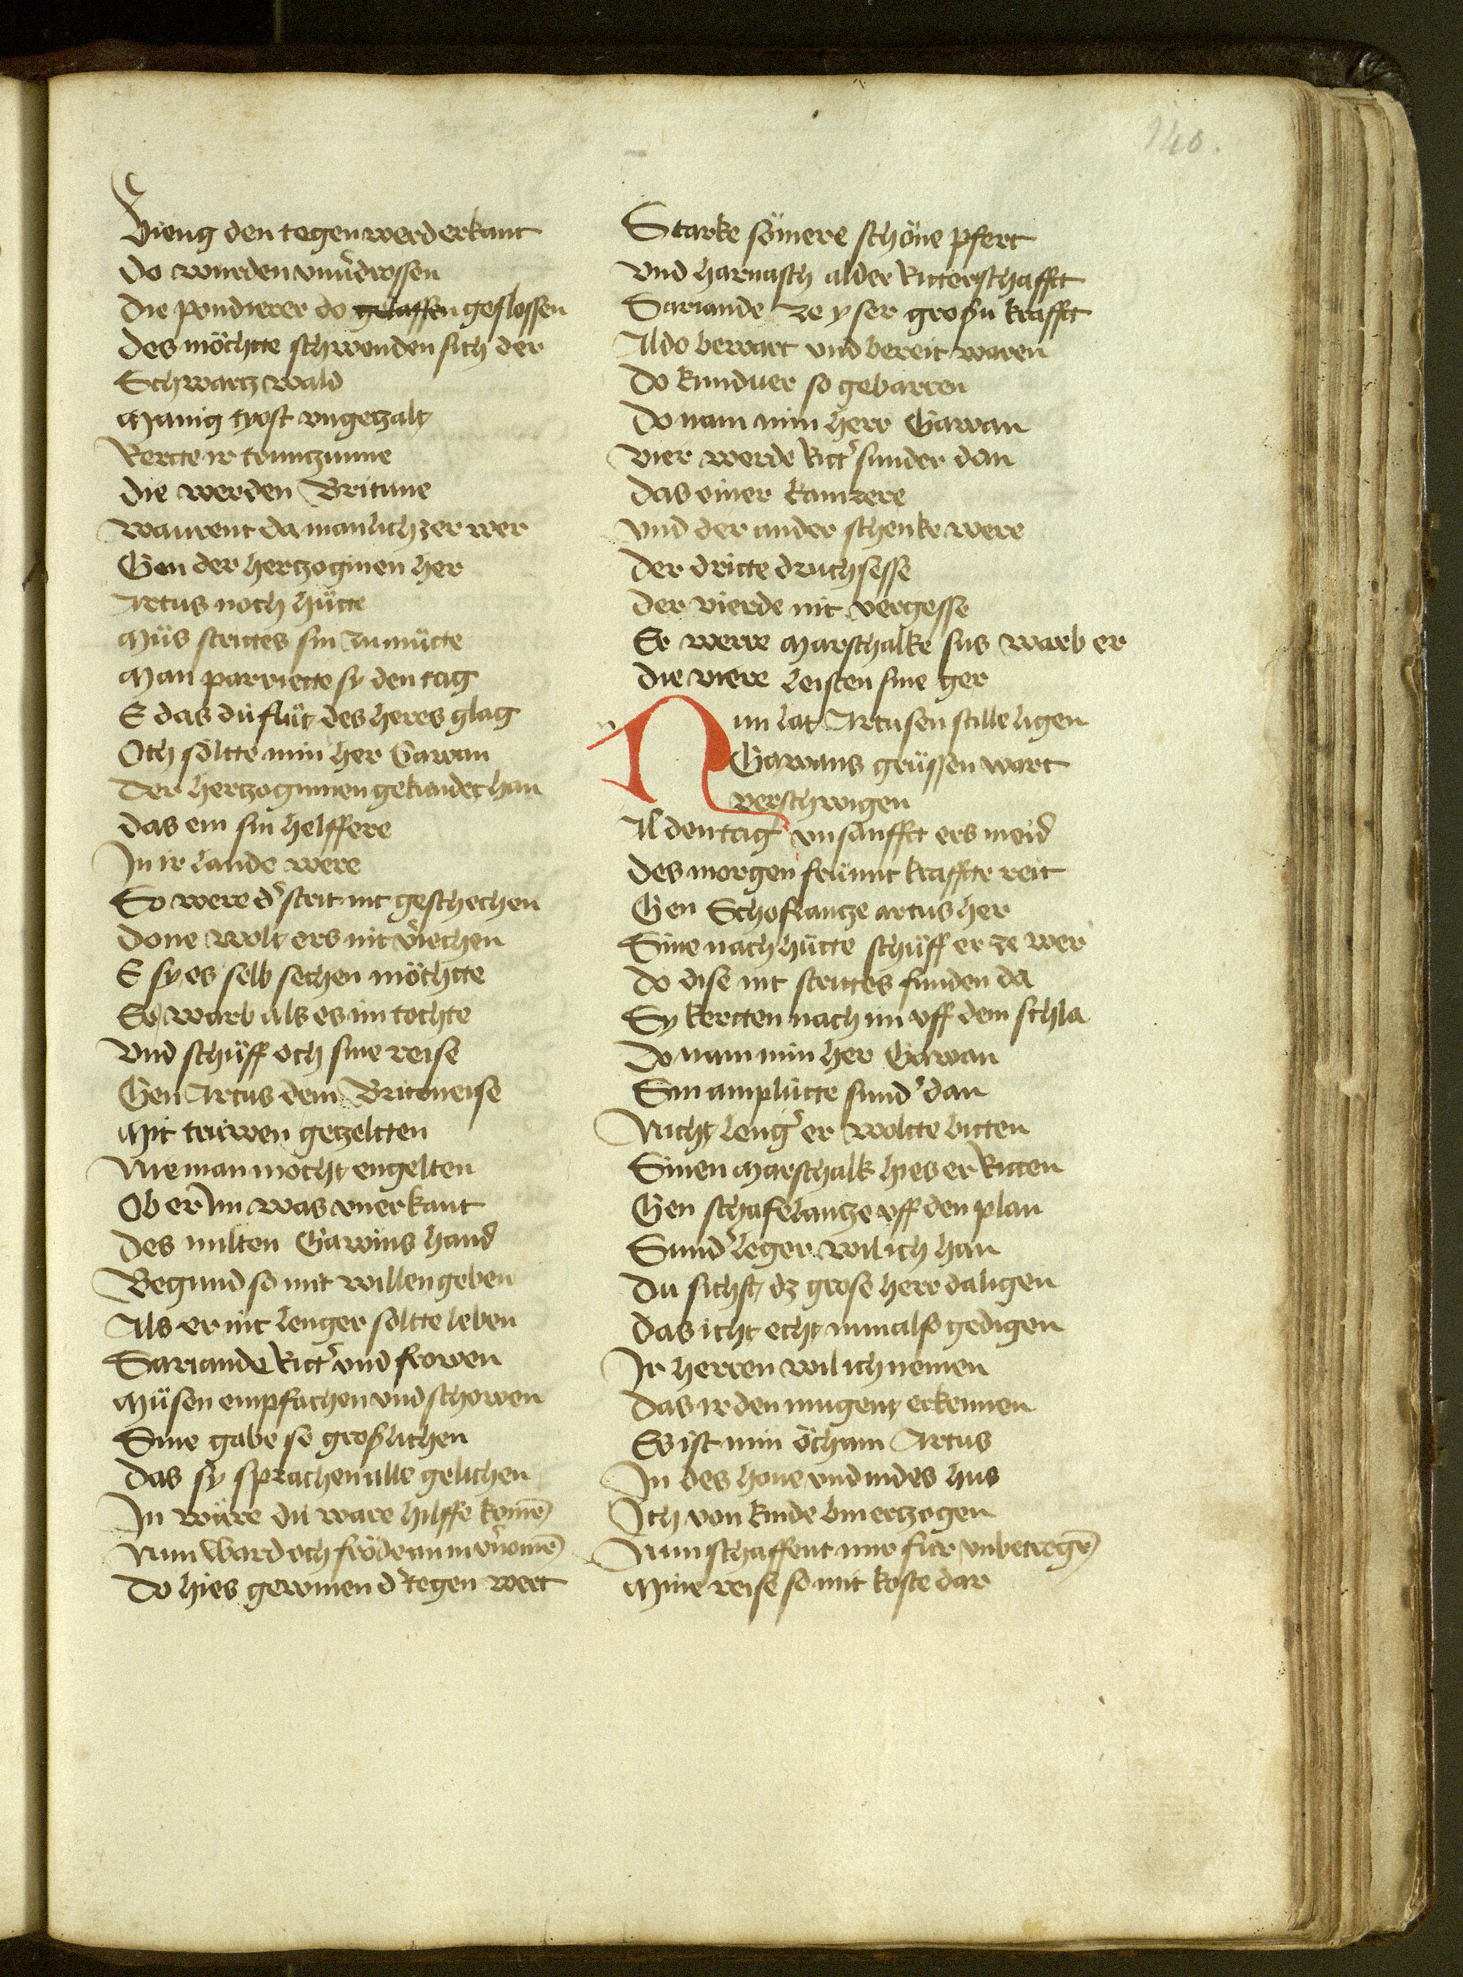 140.
Vieng den tegen werd erkant
Do wurden vnuͦdrossen
Die pondierer do gelassen geflossen
Des möchtte schwenden sich der
Schwartz wald
Manig tyost vngezalt
Kertte ir trunczunne
Die werden Britune
Waurent da manlich zer wer
Gen der hertzoginen her
Artus noch hütte
Müs strittes sin zu mütte
Man parriertte sy den tag
E das dü flüt des heres glag
Och söltte min her Gawan
Der hertzoginnen gekündet han
Das ein sin helffere
In ir lande were
So were d' strit nit geschechen
Done wolt ers nit v'iechen
E sy es selb sechen möchtte
Er warb als es im tochte
Vnd schüff och sine reise
Gen Artus dem Brittineise
Mit trüwen gezeltten
Nieman mocht engelten
Ob er im was vnerkant
Des milten Gawins hand
Begund so mit willen geben
Als er nit lenger söltte leben
Sariande Ritt' vnd frowen
Müsen empfachen vnd schowen
Sine gabe so groslichen
Das sy sprachen alle gelichen
In wäre dü ware hilffe komē
Nun ward och fröde an im v'nomē
Do hies gewinnen d' tegen wert
Starke sömere schöne pfert
Vnd harnasch al der Ritterschafft
Sariande ze yser grosˀn krafft
Al do bewart vnd bereit waren
Do kund er so gebarren
Do nam min herr Gawan
Vier werde Ritt' sunder dan
Das einer kamrere
Vnd der ander schenke were
Der dritte druchsesse
Der vierde nit vergesse
Er were Marschalke sus warb er
Die viere leisten sine ger
Nun lat Artusen stille ligen
Gawans grüssen wart
verschwigen
Al den tag vnsanfft ers meid
Des morgen frü mit krafftte reit
Gen Schoflantze artus her
Sine nach hütte schüff er ze wer
Do dise nit strittes funden da
Sy kertten nach im vff dem schla
Do nam min her Gawan
Sin amplütte sund' dan
Nicht leng' er woltte bitten
Sinen Marschalk hies er Ritten
Gen schafelantze vff den plan
Sund' leger wil ich han
Du sichst dz grose herr da ligen
Das icht echt nun also gedigen
Ir herren wil ich nemen
Das ir den mugent erkennen
Es ist min öcham Artus
In des houe vnd in des hus
Ich von kinde bin erzogen
Nun schaffent mir für vnbetrogē
Mine reise so mit koste dar